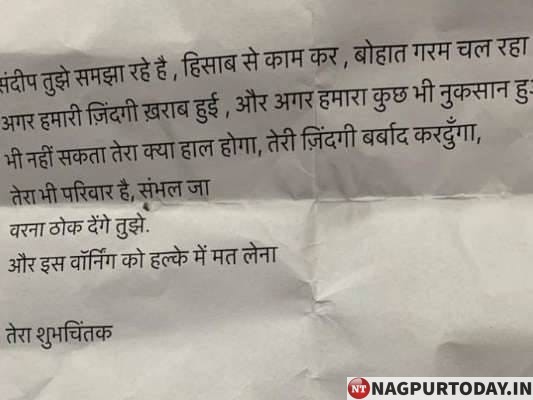 संदीप तुझे समझा रहे है , हिसाब से काम कर , बोहात गरम चल रहा
अगर हमारी ज़िंदगी ख़राब हुई , और अगर हमारा कुछ भी नुकसान
भी नहीं सकता तेरा क्या हाल होगा, तेरी ज़िंदगी बर्बाद करदुँगा,
तेरा भी परिवार है, संभल जा
वरना ठोक देंगे तुझे.
और इस वॉर्निंग को हल्के में मत लेना
तेरा शुभचिंतक
NT NAGPURTODAY.IN